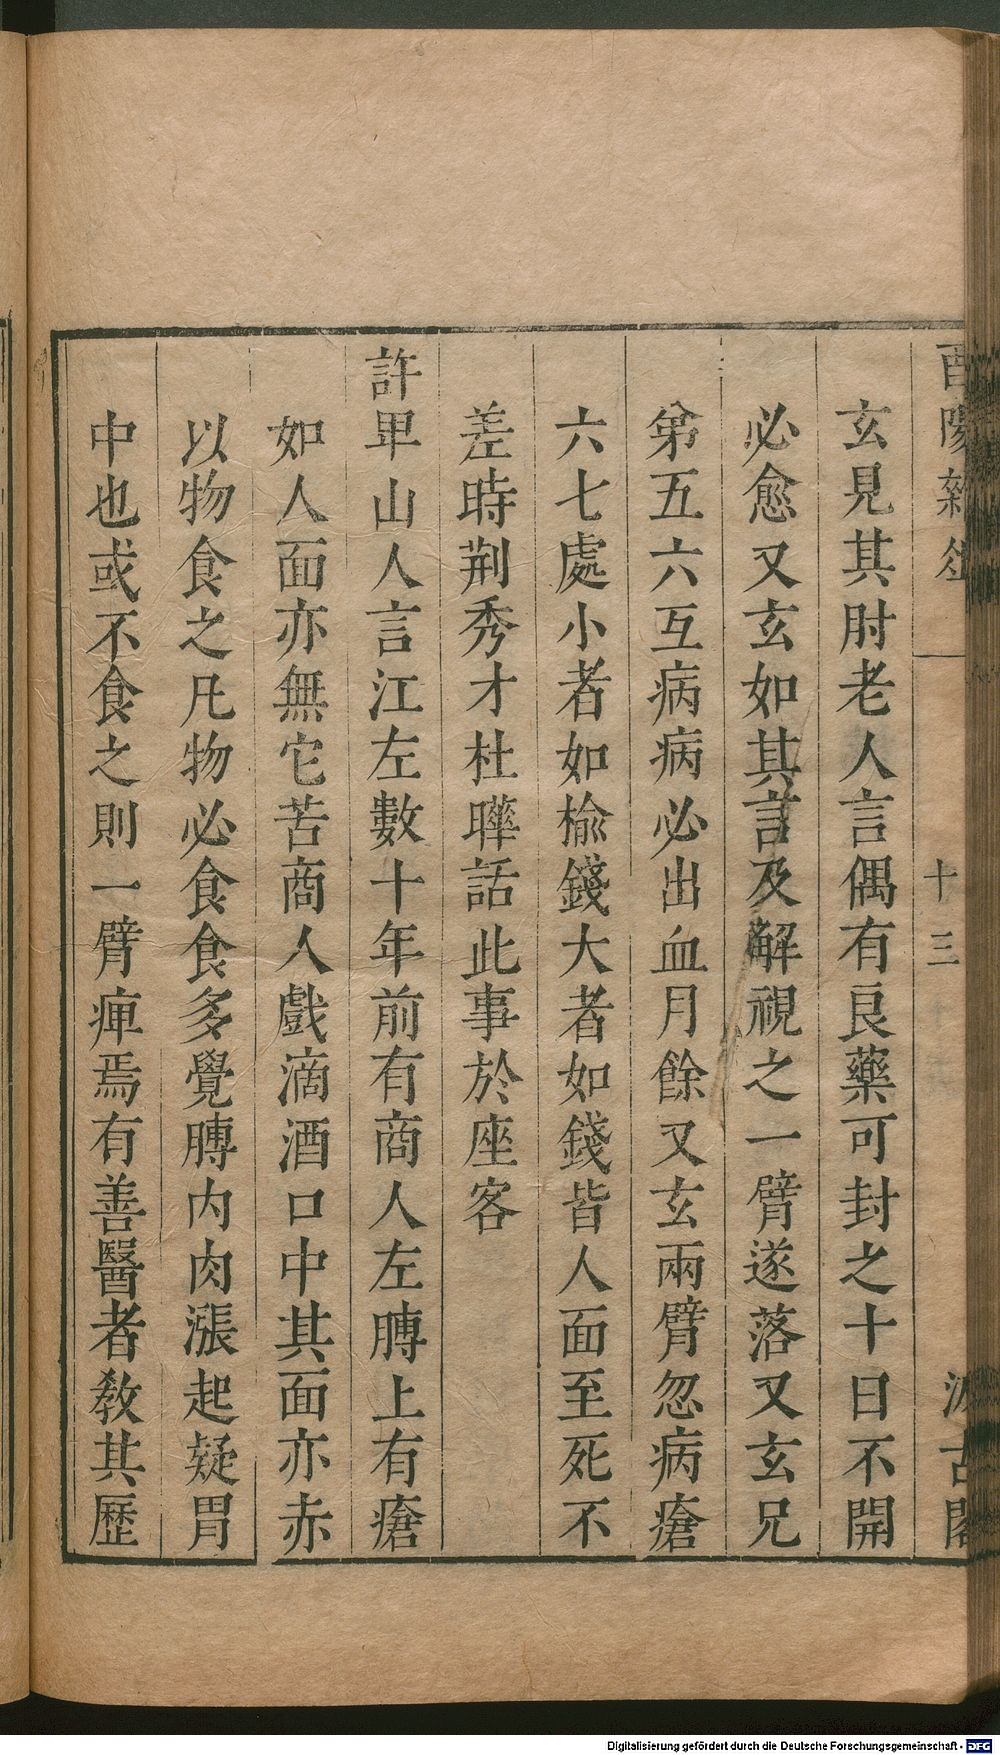 酉陽雜俎
十三
汲古閣
玄見其肘老人言偶有良藥可封之十日不開
必愈又玄如其言及解視之一臂遂落又玄兄
弟五六互病病必出血月餘又玄兩臂忽病瘡
六七處小者如楡錢大者如錢皆人面至死不
差時荆秀才杜曄話此事於座客
許卑山人言江左數十年前有商人左膊上有瘡
如人面亦無它苦商人戲滴酒口中其面亦赤
以物食之凡物必食食多覺膊内肉漲起疑胃
中也或不食之則一臂痺焉有善醫者敎其歷
Digitalisierung gefördert durch die Deutsche Forschungsgemeinschaft - DFG